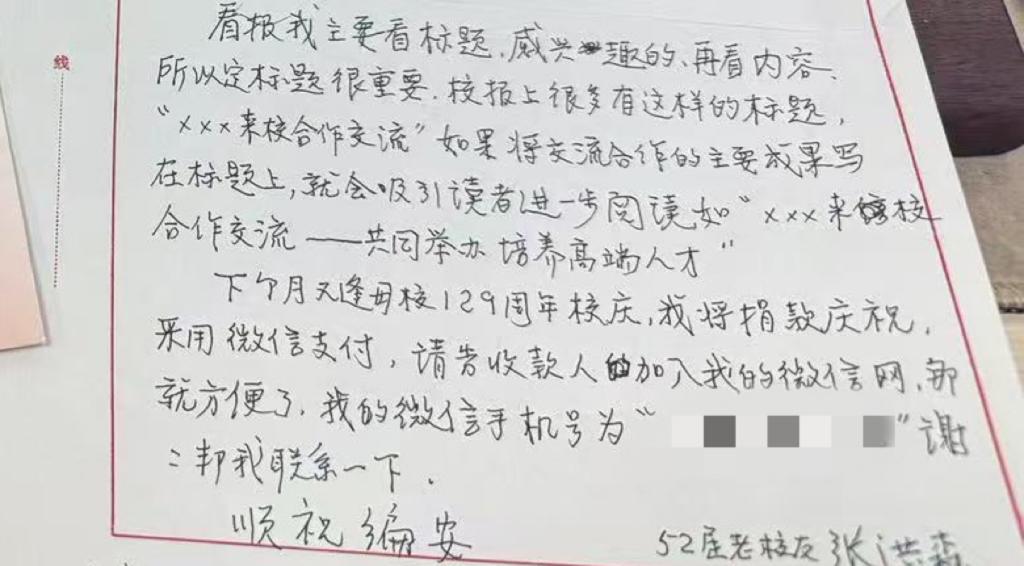 线
看报我主要看标题,感兴趣的、再看内容、
所以定标题很重要.校报上很多有这样的标题,
“×××来校合作交流”如果将交流合作的主要成果写
在标题上,就会吸引读者进一步阅读如“×××来校
合作交流——共同举办培养高端人才”
下个月又逢母校129周年校庆,我将捐款庆祝.
采用微信支付,请告收款人加入我的微信网,那
就方便了.我的微信手机号为“ ”谢
:帮我联系一下.
顺祝编安
52届老校友张洪森